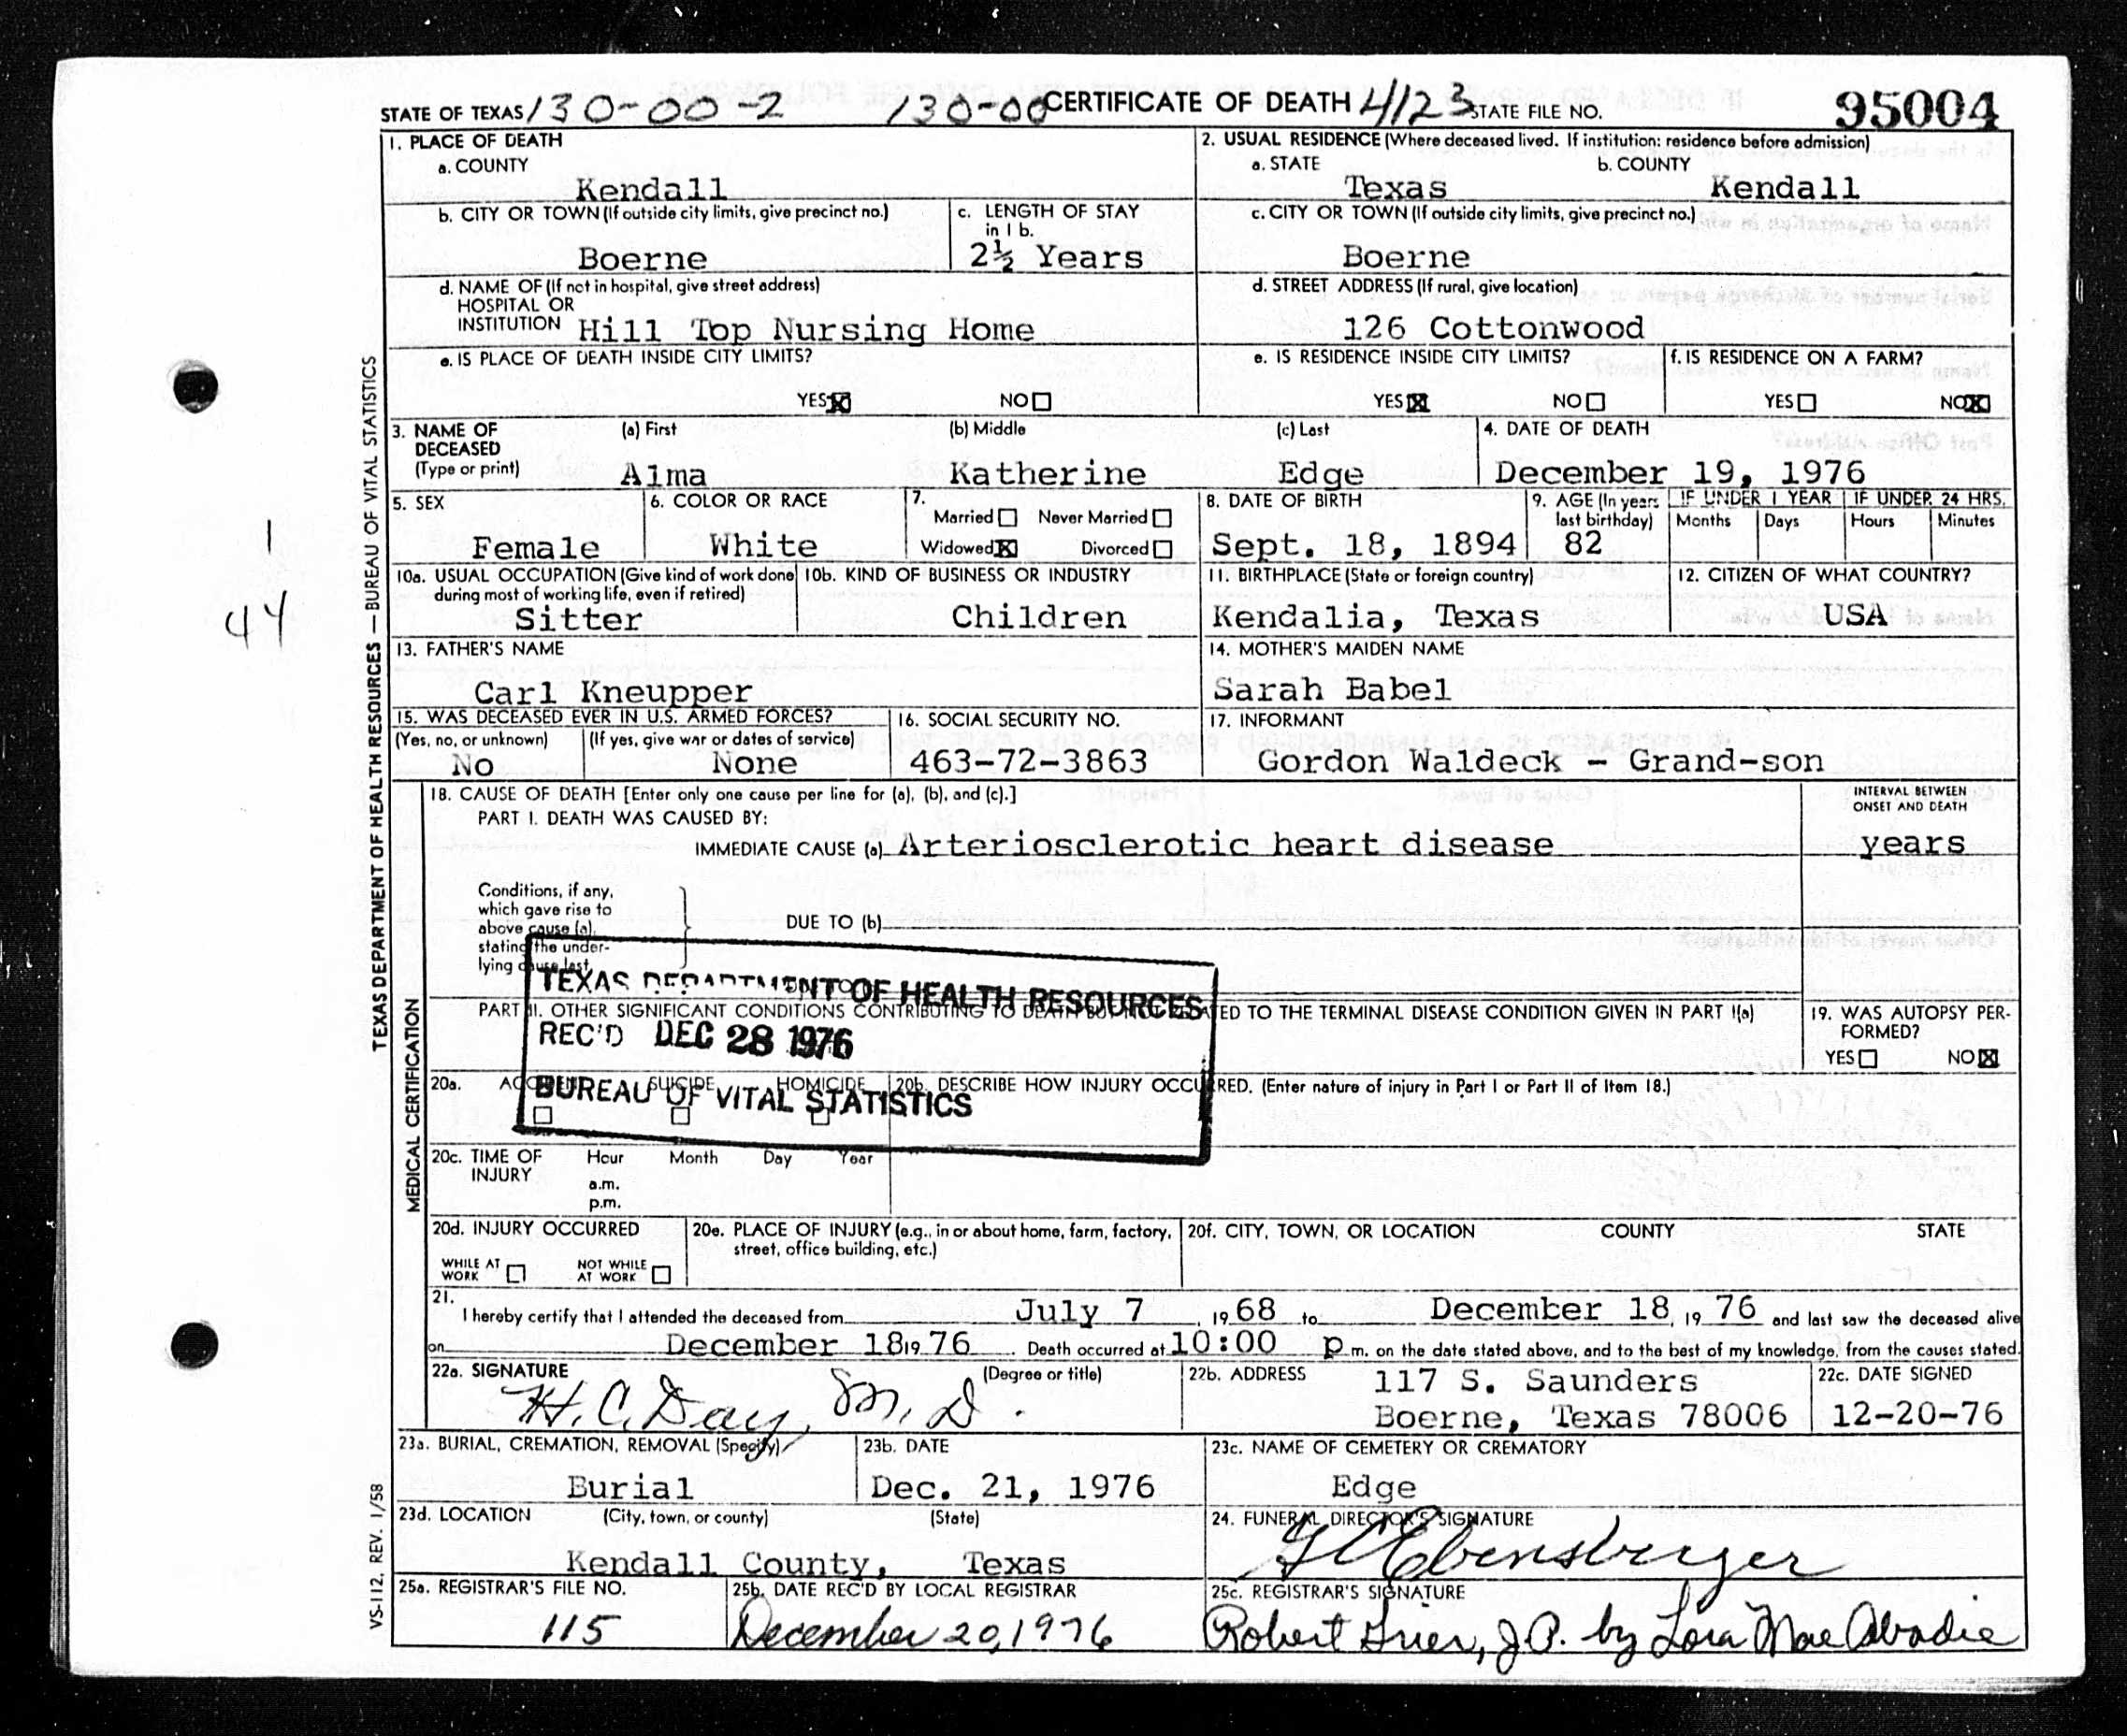 STATE OF TEXAS 130-00-2 130-00 CERTIFICATE OF DEATH 4123 STATE FILE NO. 95004
1. PLACE OF DEATH
a. COUNTY
Kendall
2. USUAL RESIDENCE (Where deceased lived. If institution: residence before admission)
a. STATE b. COUNTY
Texas Kendall
b. CITY OR TOWN (If outside city limits, give precinct no.)
Boerne
c. LENGTH OF STAY
in 1 b.
2½ Years
c. CITY OR TOWN (If outside city limits, give precinct no.)
Boerne
d. NAME OF (If not in hospital, give street address)
HOSPITAL OR
INSTITUTION Hill Top Nursing Home
d. STREET ADDRESS (If rural, give location)
126 Cottonwood
e. IS PLACE OF DEATH INSIDE CITY LIMITS?
YES☒ NO☐
e. IS RESIDENCE INSIDE CITY LIMITS?
YES☒ NO☐
f. IS RESIDENCE ON A FARM?
YES☐ NO☒
3. NAME OF
DECEASED
(Type or print)
(a) First (b) Middle (c) Last
Alma Katherine Edge
4. DATE OF DEATH
December 19, 1976
5. SEX
Female
6. COLOR OR RACE
White
7.
Married☐ Never Married☐
Widowed☒ Divorced☐
8. DATE OF BIRTH
Sept. 18, 1894
9. AGE (In years
last birthday)
82
IF UNDER 1 YEAR
Months Days
IF UNDER 24 HRS.
Hours Minutes
10a. USUAL OCCUPATION (Give kind of work done
during most of working life, even if retired)
Sitter
10b. KIND OF BUSINESS OR INDUSTRY
Children
11. BIRTHPLACE (State or foreign country)
Kendalia, Texas
12. CITIZEN OF WHAT COUNTRY?
USA
13. FATHER'S NAME
Carl Kneupper
14. MOTHER'S MAIDEN NAME
Sarah Babel
15. WAS DECEASED EVER IN U.S. ARMED FORCES?
(Yes, no, or unknown) (If yes, give war or dates of service)
No None
16. SOCIAL SECURITY NO.
463-72-3863
17. INFORMANT
Gordon Waldeck - Grand-son
18. CAUSE OF DEATH [Enter only one cause per line for (a), (b), and (c).]
PART I. DEATH WAS CAUSED BY:
IMMEDIATE CAUSE (a) Arteriosclerotic heart disease
INTERVAL BETWEEN
ONSET AND DEATH
years
Conditions, if any,
which gave rise to
above cause (a),
stating the under-
lying cause last.
DUE TO (b)
TEXAS DEPARTMENT OF HEALTH RESOURCES
REC'D DEC 28 1976
BUREAU OF VITAL STATISTICS
PART II. OTHER SIGNIFICANT CONDITIONS CONTRIBUTING TO DEATH BUT NOT RELATED TO THE TERMINAL DISEASE CONDITION GIVEN IN PART I(a)
19. WAS AUTOPSY PER-
FORMED?
YES☐ NO☒
20a. ACCIDENT SUICIDE HOMICIDE
☐ ☐ ☐
20b. DESCRIBE HOW INJURY OCCURRED. (Enter nature of injury in Part I or Part II of Item 18.)
20c. TIME OF
INJURY
Hour Month Day Year
a.m.
p.m.
20d. INJURY OCCURRED
WHILE AT
WORK ☐
NOT WHILE
AT WORK ☐
20e. PLACE OF INJURY (e.g., in or about home, farm, factory,
street, office building, etc.)
20f. CITY, TOWN, OR LOCATION COUNTY STATE
21.
I hereby certify that I attended the deceased from July 7, 1968 to December 18, 1976 and last saw the deceased alive
on December 18 1976. Death occurred at 10:00 p m. on the date stated above, and to the best of my knowledge, from the causes stated.
22a. SIGNATURE (Degree or title)
H. C. Day, M. D.
22b. ADDRESS
117 S. Saunders
Boerne, Texas 78006
22c. DATE SIGNED
12-20-76
23a. BURIAL, CREMATION, REMOVAL (Specify)
Burial
23b. DATE
Dec. 21, 1976
23c. NAME OF CEMETERY OR CREMATORY
Edge
23d. LOCATION (City, town, or county) (State)
Kendall County, Texas
24. FUNERAL DIRECTOR'S SIGNATURE
Ebensberger
25a. REGISTRAR'S FILE NO.
115
25b. DATE REC'D BY LOCAL REGISTRAR
December 20, 1976
25c. REGISTRAR'S SIGNATURE
Robert Grier, J.P. by Lora Mae Abadie
TEXAS DEPARTMENT OF HEALTH RESOURCES — BUREAU OF VITAL STATISTICS
MEDICAL CERTIFICATION
VS-112, REV. 1/58
1
44